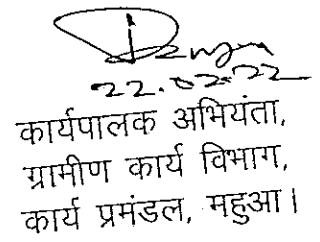 22.02.22
कार्यपालक अभियंता,
ग्रामीण कार्य विभाग,
कार्य प्रमंडल, महुआ।